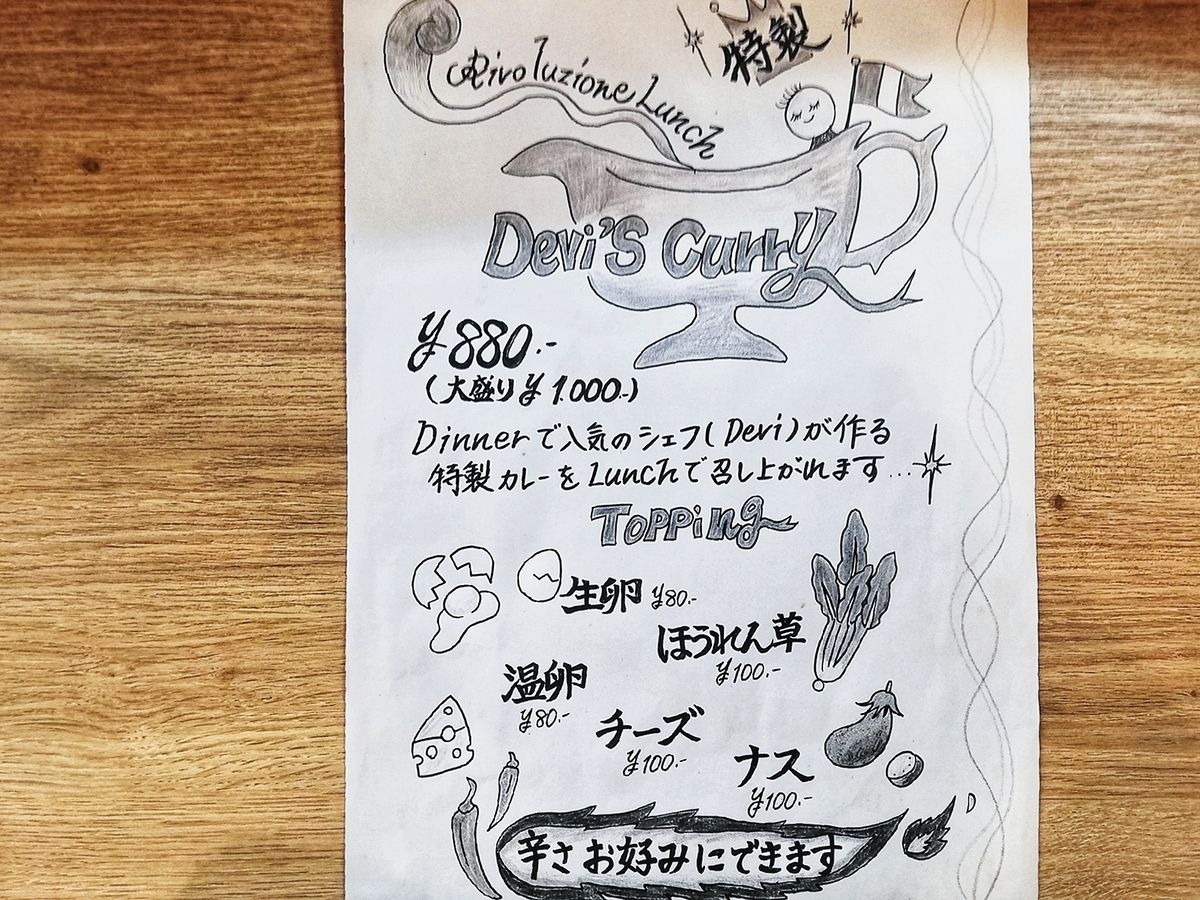 特製
Rivoluzione Lunch
Devi's Curry
¥880.-
(大盛り¥1.000.-)
Dinnerで人気のシェフ(Devi)が作る
特製カレーをLunchで召し上がれます...
Topping
生卵 ¥80.-
ほうれん草
¥100.-
温卵
¥80.-
チーズ
¥100.-
ナス
¥100.-
辛さお好みにできます